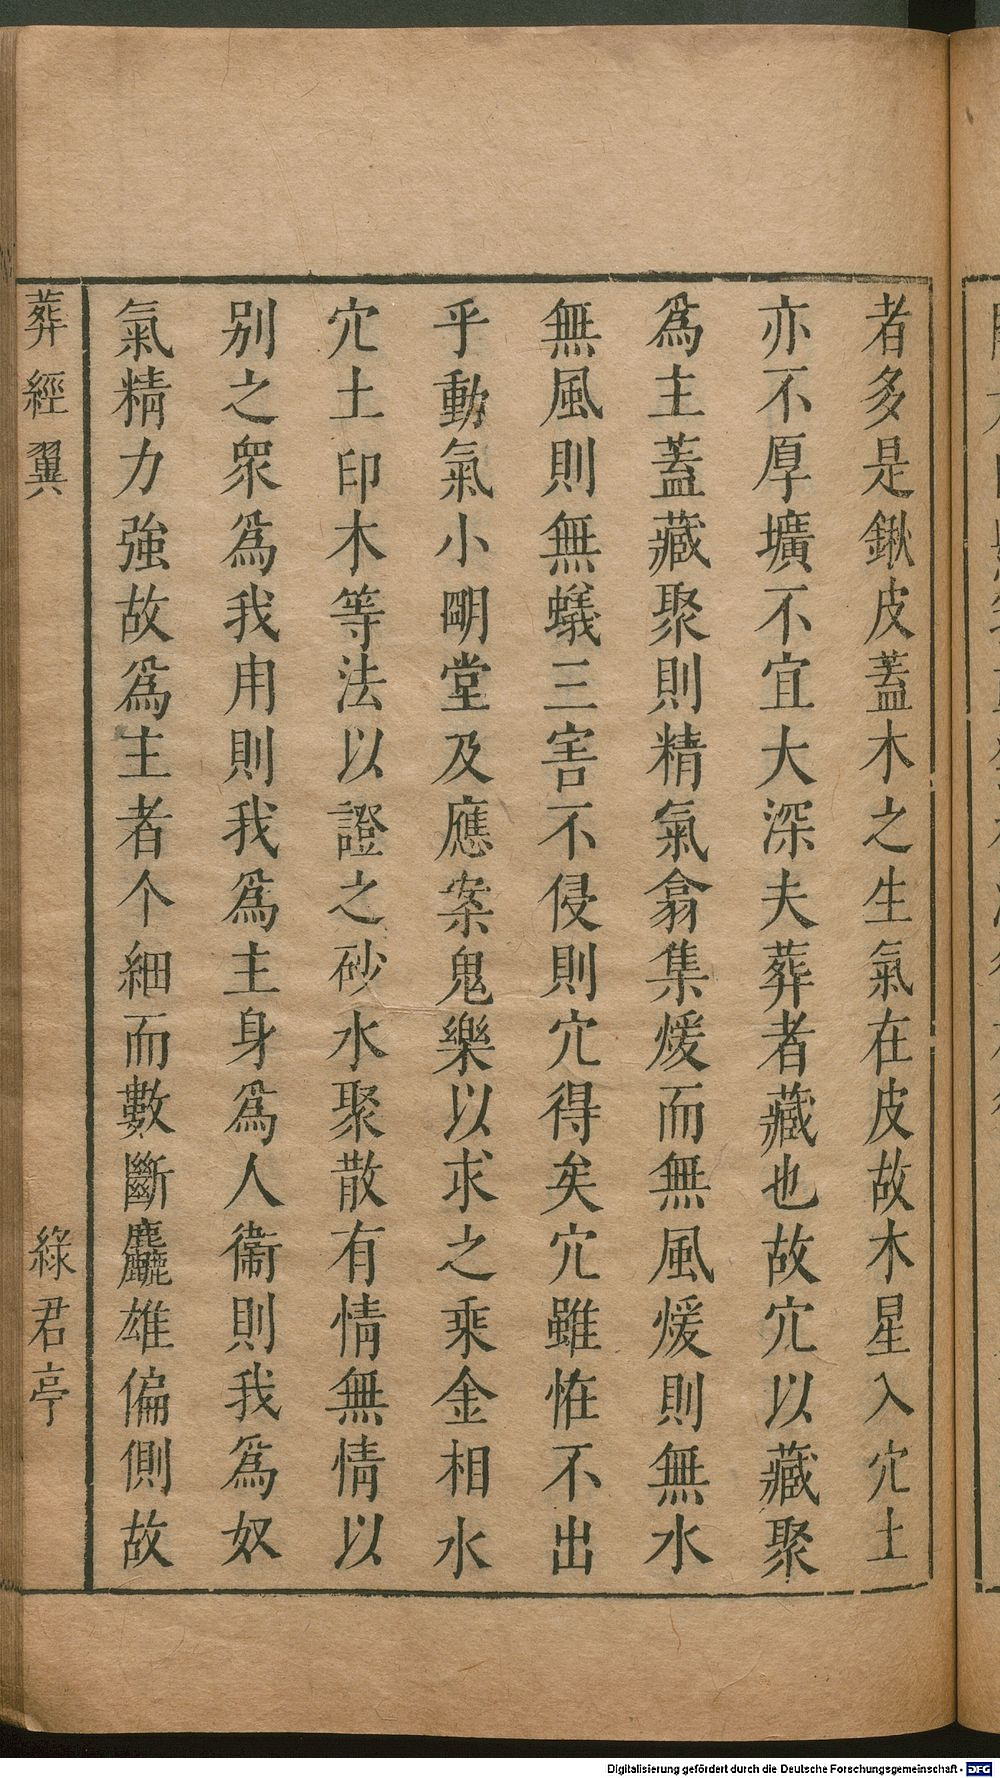 者多是鍬皮蓋木之生氣在皮故木星入穴土
亦不厚壙不宜大深夫葬者藏也故穴以藏聚
爲主蓋藏聚則精氣翕集煖而無風煖則無水
無風則無蟻三害不侵則穴得矣穴雖恠不出
乎動氣小明堂及應案鬼樂以求之乘金相水
穴土印木等法以證之砂水聚散有情無情以
别之衆爲我用則我爲主身爲人衞則我爲奴
氣精力強故爲主者个細而數斷麤雄偏側故
葬經翼
綠君亭
Digitalisierung gefördert durch die Deutsche Forschungsgemeinschaft - DFG